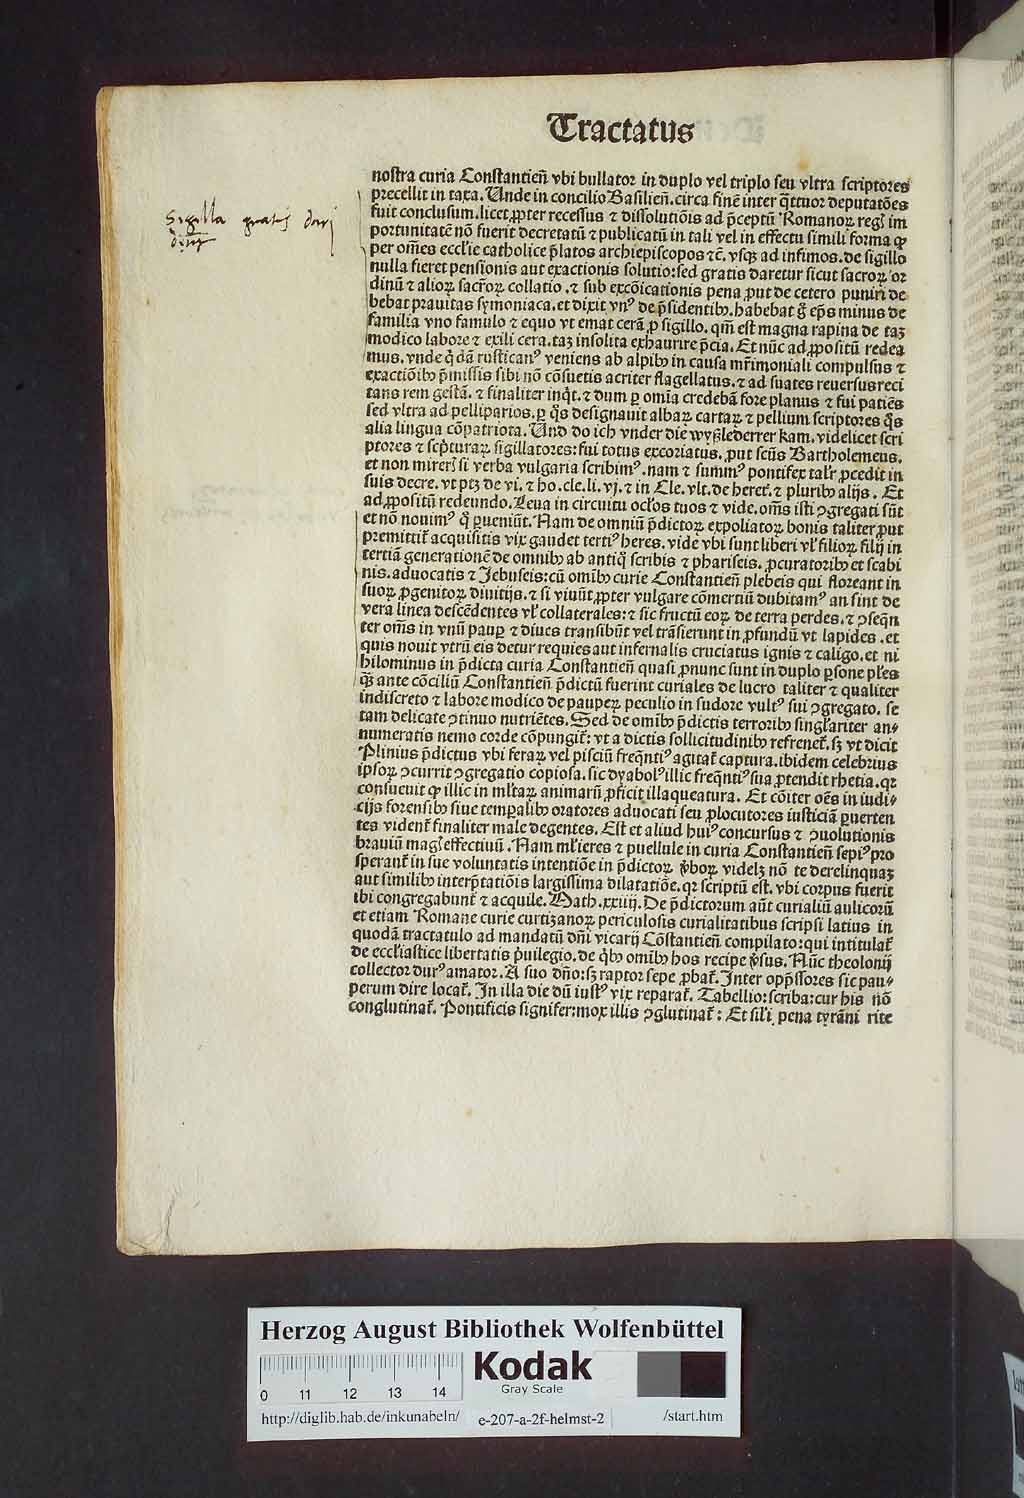 Tractatus
nostra curia Constantien̄ vbi bullatoꝝ in duplo vel triplo seu vltra scriptores
precellit in taxa. Unde in concilio Basilien̄. circa finē inter q̈ttuor deputatōes
fuit conclusum. licet ꝓpter recessus ⁊ dissolutiōis ad p̄ceptū Romanoꝝ regꝭ im
portunitatē nō fuerit decretatū ⁊ publicatū in tali vel in effectu simili forma ꝙ
per om̄es eccl̓ie catholice p̄latos archiepiscopos ⁊c̄. vsqꝫ ad infimos. de sigillo
nulla fieret pensionis aut exactionis solutio: sed gratis daretur sicut sacroꝝ or
dinū ⁊ alioꝝ sacr̄oꝝ collatio. ⁊ sub excōicationis pena ꝓut de cetero puniri de
bebat prauitas symoniaca. et dixit vnꝰ de p̄sidentibꝫ. habebat g̊ ep̄s minus de
familia vno famulo ⁊ equo vt emat cerā ꝓ sigillo. qm̄ est magna rapina de taꝫ
modico labore ⁊ exili cera. taꝫ insolita exhaurire p̄cia. Et nūc ad ꝓpositū redea
mus. vnde q̇dā rusticanꝰ veniens ab alpibꝫ in causa mr̄imoniali compulsus ⁊
exactiōibꝫ p̄missis sibi nō cōsuetis acriter flagellatus. ⁊ ad suates reuersus reci
tans rem gestā. ⁊ finaliter inq̇t. ⁊ dum ꝑ omia credebā fore planus ⁊ fui patiēs
sed vltra ad pelliparios. ꝑ q̊s designauit albaꝝ cartaꝝ ⁊ pellium scriptores q̊s
alia lingua cōpatriota. Und do ich vnder die wyßlederrer kam. videlicet scri
ptores ⁊ scp̄turaꝝ sigillatores: fui totus excoriatus. ꝓut scūs Bartholemeus.
et non mirerꝭ si verba vulgaria scribimꝰ. nam ⁊ summꝰ pontifex talr̓ ꝓcedit in
suis decre. vt ptꝫ de vi. ⁊ ho. cle. li. vj. ⁊ in Cle. vlt. de heret̓. ⁊ pluribꝫ alijs. Et
ad ꝓpositū redeundo. Leua in circuitu ocl̓os tuos ⁊ vide. om̄s isti ꝯgregati sūt
et nō nouimꝰ q̇ ꝑueniūt. Nam de omniū p̄dictoꝝ expoliatoꝝ bonis taliter ꝓut
premittit̓ acquisitis vix gaudet tertiꝰ heres. vide vbi sunt liberi vl̓ filioꝝ filij in
tertiā generationē de omnibꝫ ab antiq̇ scribis ⁊ phariseis. ꝓcuratoribꝫ et scabi
nis. aduocatis ⁊ Jebuseis: cū omibꝫ curie Constantien̄ plebeis qui floreant in
suoꝝ ꝓgenitoꝝ diuitijs. ⁊ si viuūt ꝓpter vulgare cōmertiū dubitamꝰ an sint de
vera linea descēdentes vl̓ collaterales: ⁊ sic fructū eoꝝ de terra perdes. ⁊ ꝯseqn̄
ter om̄s in vnū pauꝑ ⁊ diues transibūt vel trāsierunt in ꝓfundū vt lapides. et
quis nouit vtrū eis detur requies aut infernalis cruciatus ignis ⁊ caligo. et ni
hilominus in p̄dicta curia Constantien̄ quasi ꝓnunc sunt in duplo ꝑsone pl̓es
q̄ꝫ ante cōciliū Constantien̄ p̄dictū fuerint curiales de lucro taliter ⁊ qualiter
indiscreto ⁊ labore modico de pauperꝝ peculio in sudore vultꝰ sui ꝯgregato. se
tam delicate ꝯtinuo nutriētes. Sed de omibꝫ p̄dictis terroribꝫ singl̓ariter an-
numeratis nemo corde cōpungit̓: vt a dictis sollicitudinibꝫ refrenet̓. sꝫ vt dicit
Plinius p̄dictus vbi feraꝝ vel pisciū freq̄ntiꝰ agitat̓ captura. ibidem celebrius
ipsoꝝ ꝯcurrit ꝯgregatio copiosa. sic dyabolꝰ illic freq̄ntiꝰ sua ꝓtendit rhetia. qꝛ
consueuit ꝙ illic in ml̓taꝝ animarū ꝓficit illaqueatura. Et cōiter oēs in iudi-
cijs forensibꝫ siue temꝑalibꝫ oratores aduocati seu ꝓlocutores iusticiā ꝑuerten
tes vident̓ finaliter male degentes. Est et aliud huiꝰ concursus ⁊ ꝯuolutionis
brauiū magꝭ effectiuū. Nam ml̓ieres ⁊ puellule in curia Constantien̄ sepiꝰ pro
sperant̓ in sue voluntatis intentiōe in p̄dictoꝝ v̓boꝝ videlꝫ nō te derelinquaꝫ
aut similibꝫ interp̄tatiōis largissima dilatatiōe. qꝛ scriptū est. vbi corpus fuerit
ibi congregabunt̓ ⁊ acquile. Math. xxiiij. De p̄dictorum aūt curialiū aulicorū
et etiam Romane curie curtizanoꝝ periculosis curialitatibus scripsi latius in
quodā tractatulo ad mandatū dn̄i vicarij Cōstantien̄ compilato: qui intitulat̓
de eccl̓iastice libertatis p̄uilegio. de q̇bꝫ omibꝫ hos recipe v̓sus. Nūc theolonij
collector durꝰ amator. A suo dn̄o: sꝫ raptor sepe ꝓbat̓. Inter opp̄ssores sic pau-
perum dire locat̓. In illa die dū iustꝰ vix reparat̓. Tabellio: scriba: cur his nō
conglutinat̓. Pontificis signifer: mox illis ꝯglutinat̓: Et sil̓i pena tyrāni rite
Sigilla gratis dari
Herzog August Bibliothek Wolfenbüttel
Kodak
Gray Scale
0 11 12 13 14
http://diglib.hab.de/inkunabeln/ e-207-a-2f-helmst-2 /start.htm